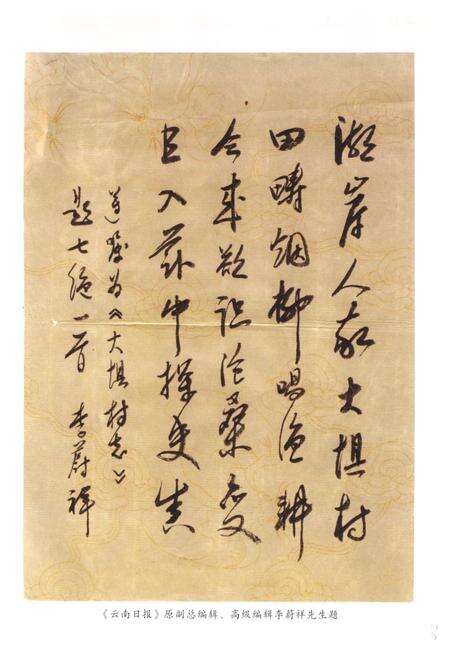 湖岸人家大惧村
田畴烟柳唱渔耕
今欲识沧桑变
且入中探史真
为《大惧村志》
题七绝一首 李蔚祥
《云南日报》原副总编辑、高级编辑李蔚祥先生题